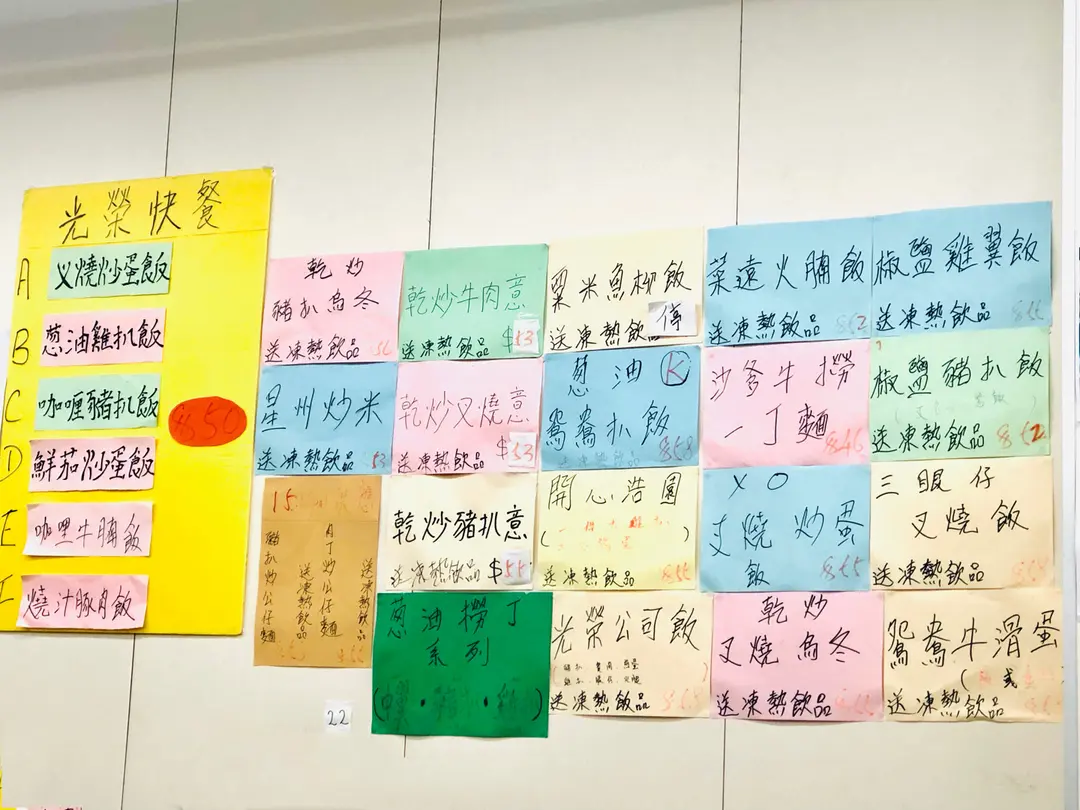 光榮快餐
A 叉燒炒蛋飯
B 葱油雞扒飯
C 咖喱豬扒飯
D 鮮茄炒蛋飯
E 咖喱牛腩飯
燒汁豚肉飯
$50
乾炒
豬扒烏冬
送凍熱飲品
乾炒牛肉意
送凍熱飲品 $53
粟米魚柳飯
送凍熱飲
停
菜遠火腩飯
送凍熱飲品
椒鹽雞翼飯
送凍熱飲品
星州炒米
送凍熱飲品 53
乾炒叉燒意
送凍熱飲品
$53
葱油 K
鴛鴦扒飯
送凍熱飲品
沙爹牛撈
一丁麵
椒鹽豬扒飯
送凍熱飲品
15
豬扒炒公仔麵
送凍熱飲品
肉丁炒公仔麵
送凍熱飲品
乾炒豬扒意
送凍熱飲品 $55
開心浩園
送凍熱飲品
XO
叉燒炒蛋
飯
三眼仔
叉燒飯
送凍熱飲品
葱油撈丁
系列
光榮公司飯
送凍熱飲品
乾炒
叉燒烏冬
送凍熱飲品
鴛鴦牛滑蛋
或
送凍熱飲品
22